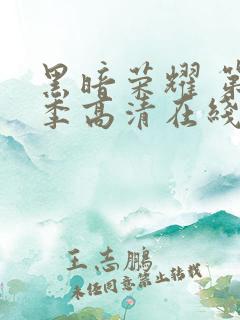 黑暗荣耀 第
季高清在线
王志鹏
未经同意禁止转载